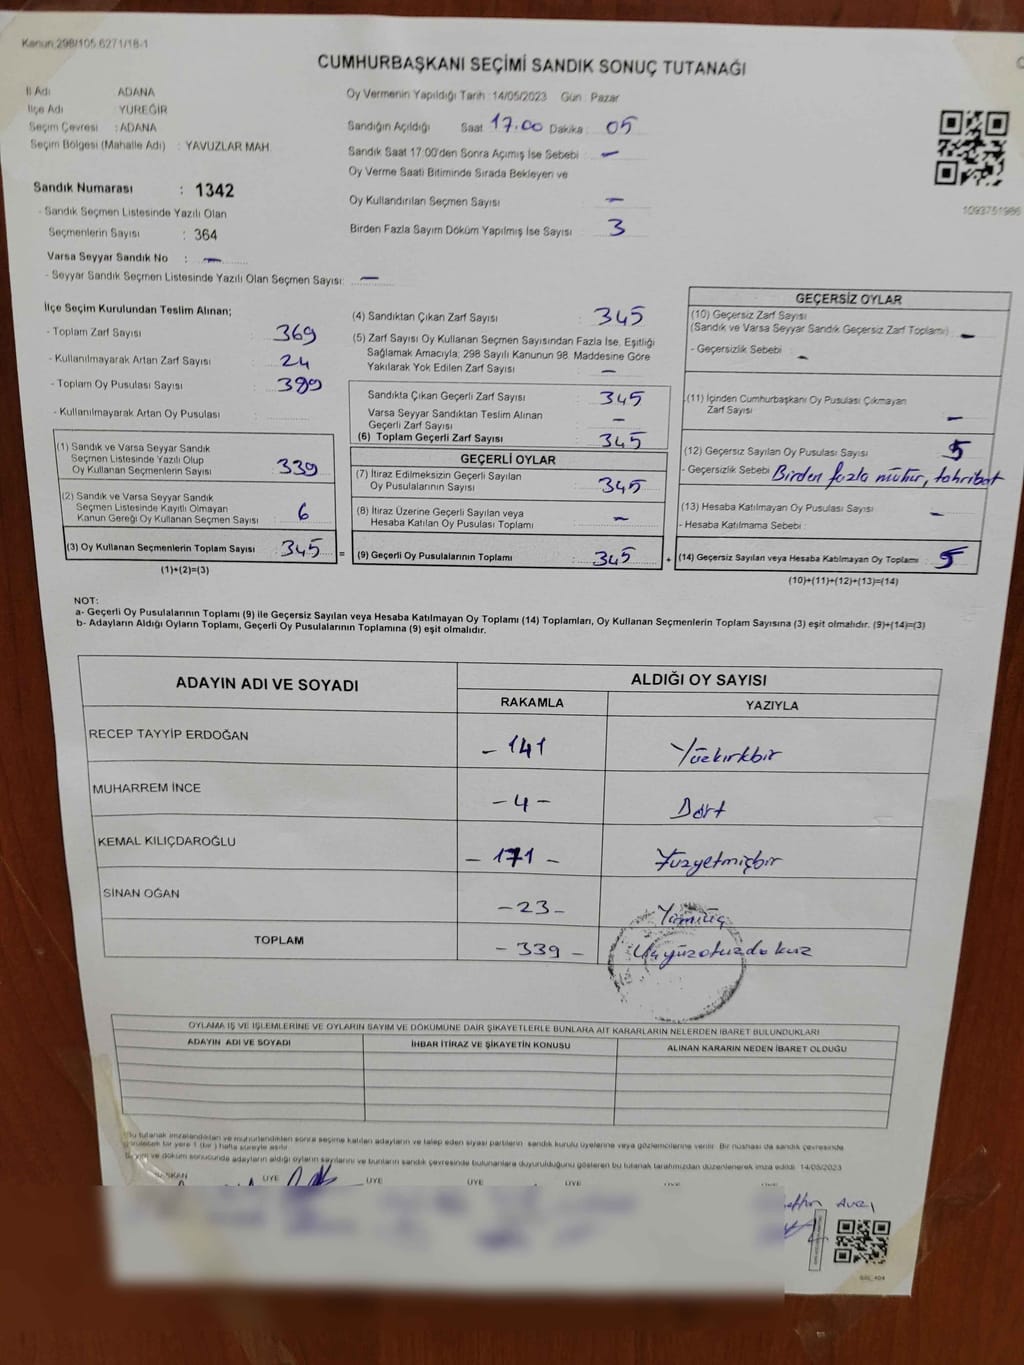 Kanun:298/105.6271/18-1
CUMHURBAŞKANI SEÇİMİ SANDIK SONUÇ TUTANAĞI
İl Adı ADANA
İlçe Adı YÜREĞİR
Seçim Çevresi : ADANA
Seçim Bölgesi (Mahalle Adı) : YAVUZLAR MAH.
Sandık Numarası : 1342
- Sandık Seçmen Listesinde Yazılı Olan
Seçmenlerin Sayısı : 364
Varsa Seyyar Sandık No : -
- Seyyar Sandık Seçmen Listesinde Yazılı Olan Seçmen Sayısı: -
Oy Vermenin Yapıldığı Tarih : 14/05/2023 Gün : Pazar
Sandığın Açıldığı Saat 17.00 Dakika : 05
Sandık Saat 17:00'den Sonra Açımış İse Sebebi -
Oy Verme Saati Bitiminde Sırada Bekleyen ve
Oy Kullandırılan Seçmen Sayısı -
Birden Fazla Sayım Döküm Yapılmış İse Sayısı 3
1093751986
İlçe Seçim Kurulundan Teslim Alınan;
- Toplam Zarf Sayısı 369
- Kullanılmayarak Artan Zarf Sayısı 24
- Toplam Oy Pusulası Sayısı 389
- Kullanılmayarak Artan Oy Pusulası
(1) Sandık ve Varsa Seyyar Sandık
Seçmen Listesinde Yazılı Olup
Oy Kullanan Seçmenlerin Sayısı 339
(2) Sandık ve Varsa Seyyar Sandık
Seçmen Listesinde Kayıtlı Olmayan
Kanun Gereği Oy Kullanan Seçmen Sayısı 6
(3) Oy Kullanan Seçmenlerin Toplam Sayısı 345 =
(1)+(2)=(3)
(4) Sandıktan Çıkan Zarf Sayısı 345
(5) Zarf Sayısı Oy Kullanan Seçmen Sayısından Fazla İse, Eşitliği
Sağlamak Amacıyla; 298 Sayılı Kanunun 98. Maddesine Göre
Yakılarak Yok Edilen Zarf Sayısı -
Sandıkta Çıkan Geçerli Zarf Sayısı 345
Varsa Seyyar Sandıktan Teslim Alınan
Geçerli Zarf Sayısı -
(6) Toplam Geçerli Zarf Sayısı 345
GEÇERLİ OYLAR
(7) İtiraz Edilmeksizin Geçerli Sayılan
Oy Pusulalarının Sayısı 345
(8) İtiraz Üzerine Geçerli Sayılan veya
Hesaba Katılan Oy Pusulası Toplamı -
(9) Geçerli Oy Pusulalarının Toplamı : 345 +
GEÇERSİZ OYLAR
(10) Geçersiz Zarf Sayısı
(Sandık ve Varsa Seyyar Sandık Geçersiz Zarf Toplamı) -
- Geçersizlik Sebebi : -
(11) İçinden Cumhurbaşkanı Oy Pusulası Çıkmayan
Zarf Sayısı -
(12) Geçersiz Sayılan Oy Pusulası Sayısı 5
- Geçersizlik Sebebi Birden fazla mühür, tahribat
(13) Hesaba Katılmayan Oy Pusulası Sayısı -
- Hesaba Katılmama Sebebi :
(14) Geçersiz Sayılan veya Hesaba Katılmayan Oy Toplamı 5
(10)+(11)+(12)+(13)=(14)
NOT:
a- Geçerli Oy Pusulalarının Toplamı (9) ile Geçersiz Sayılan veya Hesaba Katılmayan Oy Toplamı (14) Toplamları, Oy Kullanan Seçmenlerin Toplam Sayısına (3) eşit olmalıdır. (9)+(14)=(3)
b- Adayların Aldığı Oyların Toplamı, Geçerli Oy Pusulalarının Toplamına (9) eşit olmalıdır.
ADAYIN ADI VE SOYADI ALDIĞI OY SAYISI
RAKAMLA YAZIYLA
RECEP TAYYİP ERDOĞAN - 141 Yüzkırkbir
MUHARREM İNCE - 4 - Dört
KEMAL KILIÇDAROĞLU - 171 - Yüzyetmişbir
SİNAN OĞAN - 23 - Yirmiüç
TOPLAM - 339 - Üçyüzotuzdokuz
OYLAMA İŞ VE İŞLEMLERİNE VE OYLARIN SAYIM VE DÖKÜMÜNE DAİR ŞİKAYETLERLE BUNLARA AİT KARARLARIN NELERDEN İBARET BULUNDUKLARI
ADAYIN ADI VE SOYADI İHBAR İTİRAZ VE ŞİKAYETİN KONUSU ALINAN KARARIN NEDEN İBARET OLDUĞU
Bu tutanak imzalandıktan ve mühürlendikten sonra seçime katılan adayların ve talep eden siyasi partilerin sandık kurulu üyelerine veya gözlemcilerine verilir. Bir nüshası da sandık çevresinde
görülebilir bir yere 1 (bir) hafta süreyle asılır.
Sayım ve döküm sonucunda adayların aldığı oyların sayılarını ve bunların sandık çevresinde bulunanlara duyurulduğunu gösteren bu tutanak tarafımızdan düzenlenerek imza edildi. 14/05/2023
ÜYE ÜYE ÜYE ÜYE